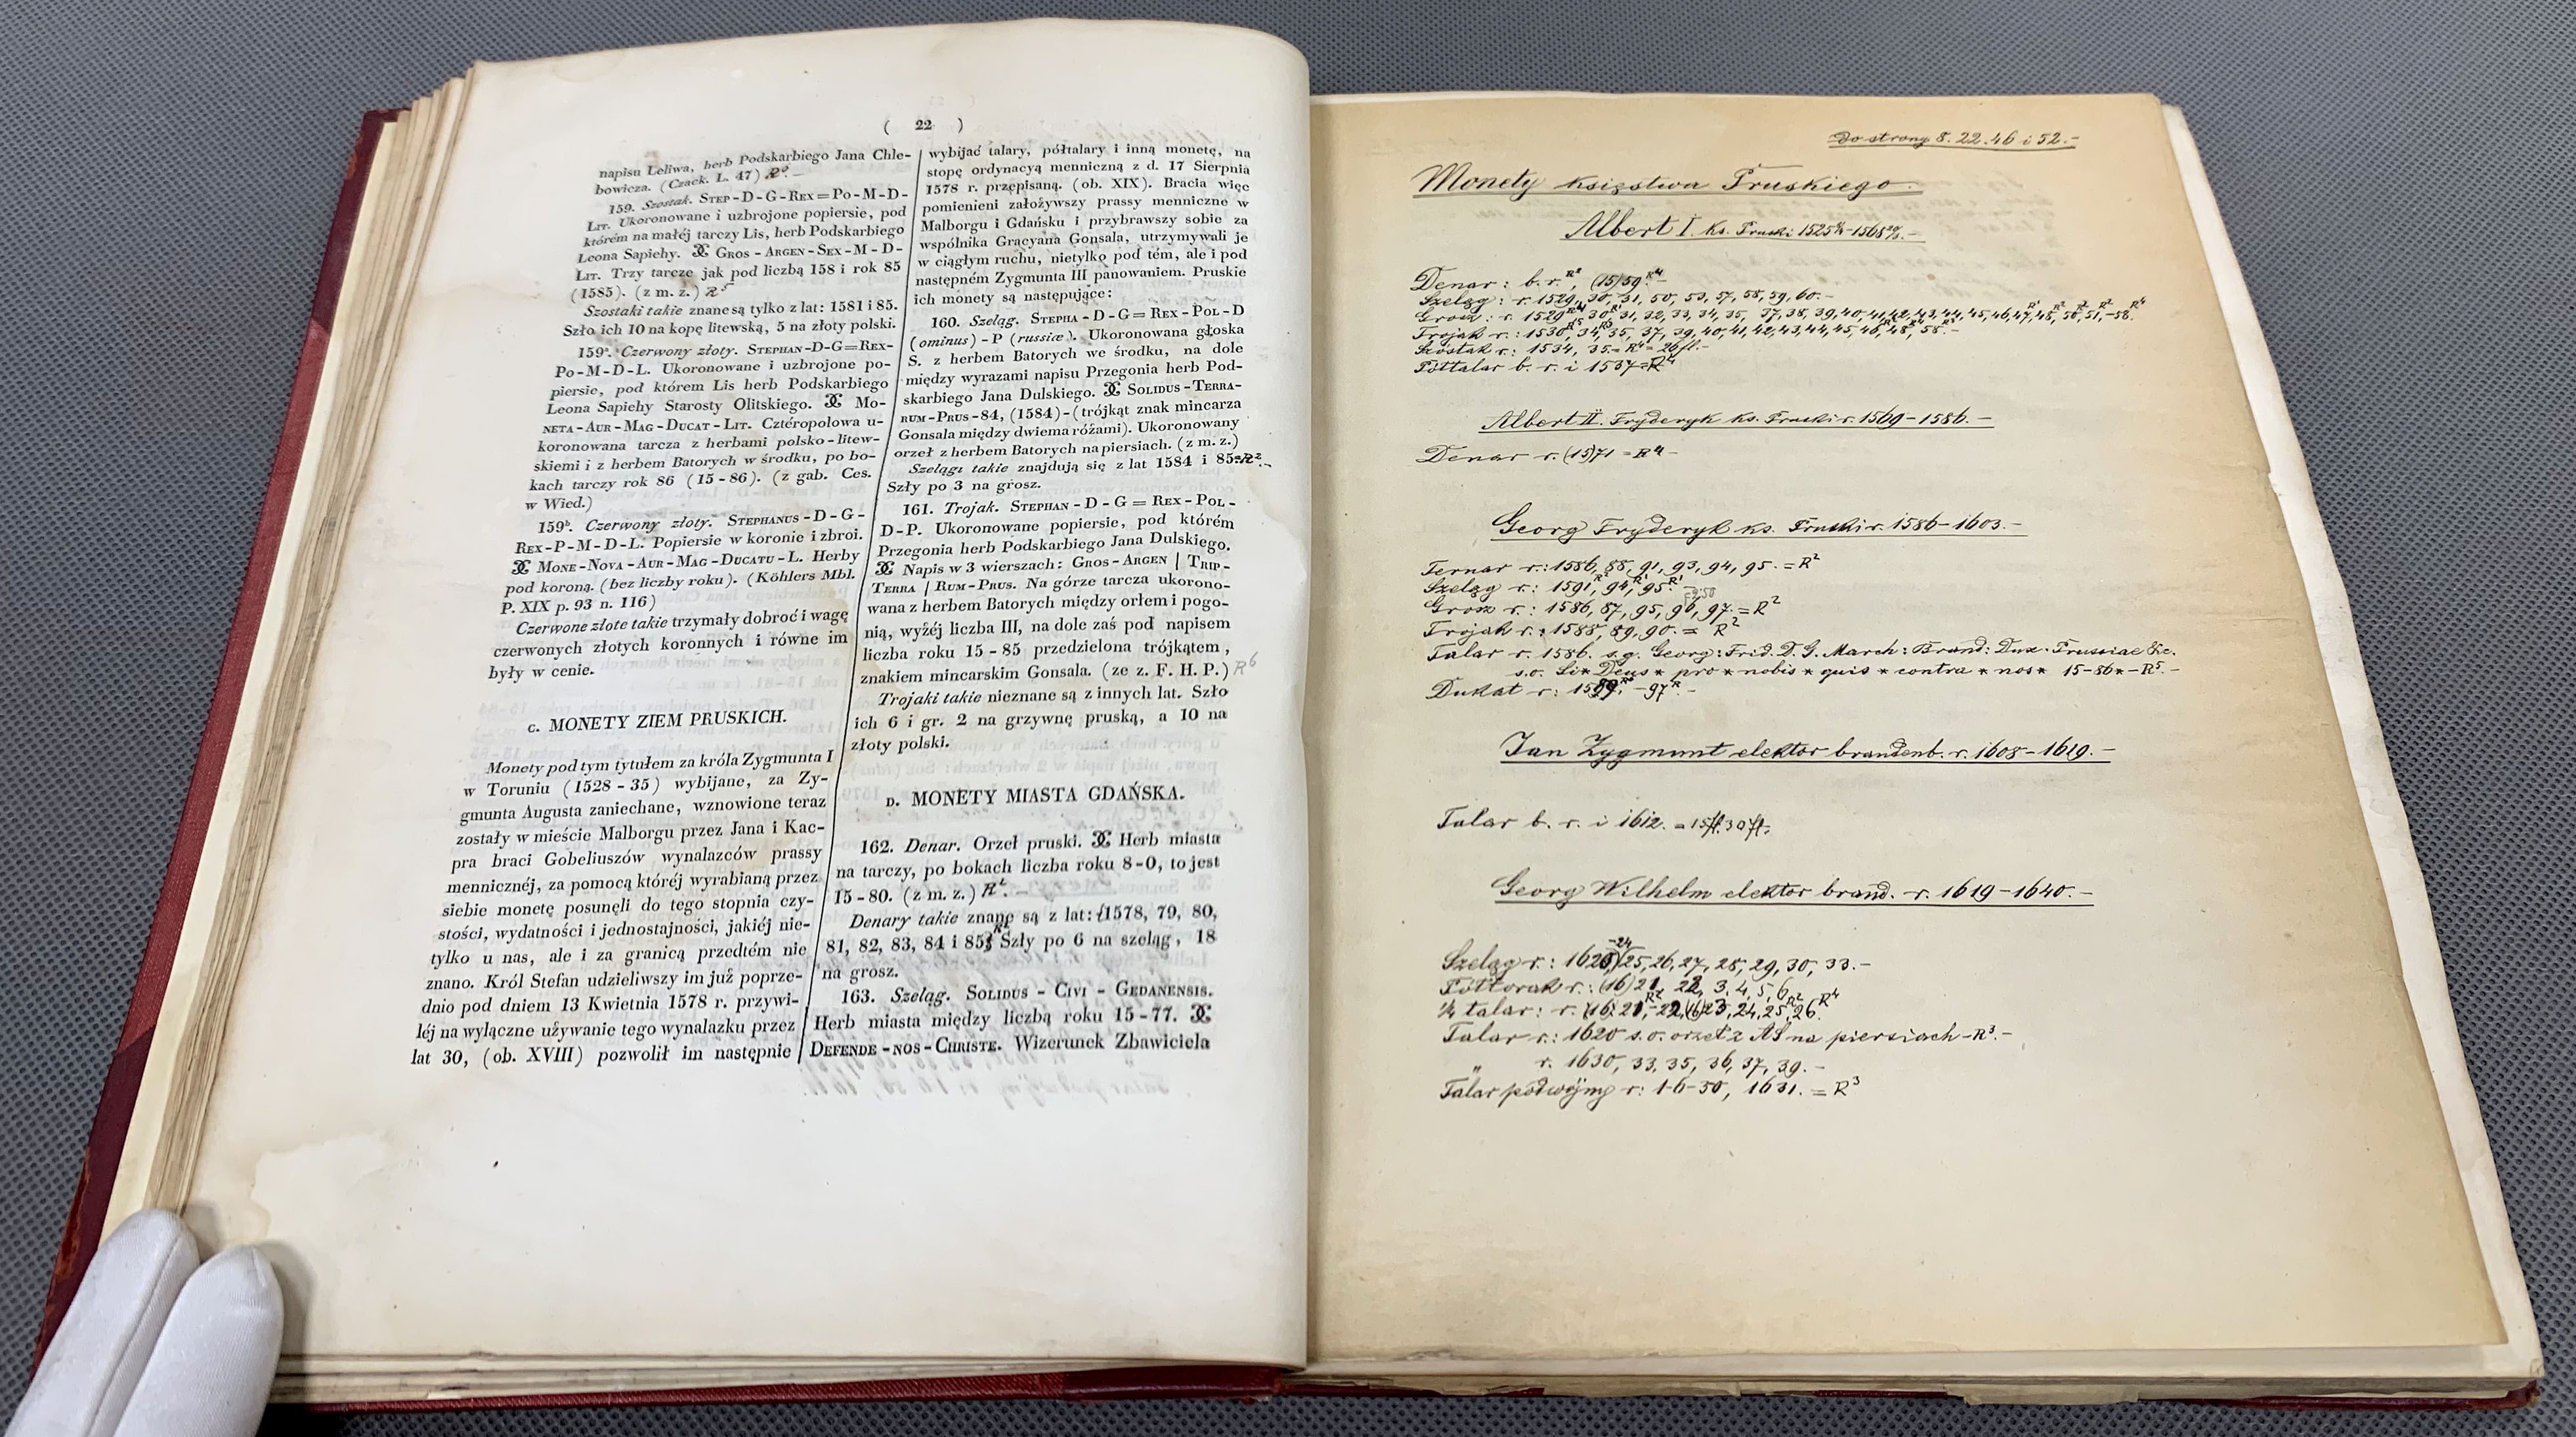 ( 22 )
napisu Leliwa, herb Podskarbiego Jana Chle-
bowicza. (Czack. L. 47)
159. Szostak. STEP-D-G-REX=PO-M-D-
LIT. Ukoronowane i uzbrojone popiersie, pod
którém na małéj tarczy Lis, herb Podskarbiego
Leona Sapiehy. ƆC GROS-ARGEN-SEX-M-D-
LIT. Trzy tarcze jak pod liczbą 158 i rok 85
(1585). (z m. z.) R5
Szostaki takie znane są tylko z lat: 1581 i 85.
Szło ich 10 na kopę litewską, 5 na złoty polski.
159ª. Czerwony złoty. STEPHAN-D-G=REX-
PO-M-D-L. Ukoronowane i uzbrojone po-
piersie, pod którem Lis herb Podskarbiego
Leona Sapiehy Starosty Olitskiego. ƆC MO-
NETA-AUR-MAG-DUCAT-LIT. Cztéropolowa u-
koronowana tarcza z herbami polsko-litew-
skiemi i z herbem Batorych w środku, po bo-
kach tarczy rok 86 (15-86). (z gab. Ces.
w Wied.)
159ᵇ. Czerwony złoty. STEPHANUS-D-G-
REX-P-M-D-L. Popiersie w koronie i zbroi.
ƆC MONE-NOVA-AUR-MAG-DUCATU-L. Herby
pod koroną. (bez liczby roku). (Köhlers Mbl.
P. XIX p. 93 n. 116)
Czerwone złote takie trzymały dobroć i wagę
czerwonych złotych koronnych i równe im
były w cenie.
C. MONETY ZIEM PRUSKICH.
Monety pod tym tytułem za króla Zygmunta I
w Toruniu (1528-35) wybijane, za Zy-
gmunta Augusta zaniechane, wznowione teraz
zostały w mieście Malborgu przez Jana i Kac-
pra braci Gobeliuszów wynalazców prassy
mennicznéj, za pomocą któréj wyrabianą przez
siebie monetę posunęli do tego stopnia czy-
stości, wydatności i jednostajności, jakiéj nie-
tylko u nas, ale i za granicą przedtém nie
znano. Król Stefan udzieliwszy im już poprze-
dnio pod dniem 13 Kwietnia 1578 r. przywi-
léj na wyłączne używanie tego wynalazku przez
lat 30, (ob. XVIII) pozwolił im następnie
wybijać talary, półtalary i inną monetę, na
stopę ordynacyą menniczną z d. 17 Sierpnia
1578 r. przepisaną. (ob. XIX). Bracia więc
pomienieni założywszy prassy mennicze w
Malborgu i Gdańsku i przybrawszy sobie za
wspólnika Gracyana Gonsala, utrzymywali je
w ciągłym ruchu, nietylko pod tém, ale i pod
następném Zygmunta III panowaniem. Pruskie
ich monety są następujące:
160. Szeląg. STEPHA-D-G=REX-POL-D
(ominus)-P (russiæ). Ukoronowana głoska
S. z herbem Batorych we środku, na dole
między wyrazami napisu Przegonia herb Pod-
skarbiego Jana Dulskiego. ƆC SOLIDUS-TERRA-
RUM-PRUS-84, (1584)-(trójkąt znak mincarza
Gonsala między dwiema różami). Ukoronowany
orzeł z herbem Batorych na piersiach. (z m. z.)
Szelągi takie znajdują się z lat 1584 i 85=R2.-
Szły po 3 na grosz.
161. Trojak. STEPHAN-D-G=REX-POL-
D-P. Ukoronowane popiersie, pod którém
Przegonia herb Podskarbiego Jana Dulskiego.
ƆC Napis w 3 wierszach: GROS-ARGEN | TRIP-
TERRA | RUM-PRUS. Na górze tarcza ukorono-
wana z herbem Batorych między orłem i pogo-
nią, wyżéj liczba III, na dole zaś pod napisem
liczba roku 15-85 przedzielona trójkątem,
znakiem mincarskim Gonsala. (ze z. F. H. P.) R6
Trojaki takie nieznane są z innych lat. Szło
ich 6 i gr. 2 na grzywnę pruską, a 10 na
złoty polski.
D. MONETY MIASTA GDAŃSKA.
162. Denar. Orzeł pruski. ƆC Herb miasta
na tarczy, po bokach liczba roku 8-0, to jest
15-80. (z m. z.)
Denary takie znane są z lat: 1578, 79, 80,
81, 82, 83, 84 i 85. Szły po 6 na szeląg, 18
na grosz.
163. Szeląg. SOLIDUS-CIVI-GEDANENSIS.
Herb miasta między liczbą roku 15-77. ƆC
DEFENDE-NOS-CHRISTE. Wizerunek Zbawiciela
Do strony 8. 22. 46 i 52.-
Monety księstwa Pruskiego.
Albert I. ks. Pruski
Denar: b. r. R2, (15)59 R4
Szeląg: r. 1529, 30, 31, 50, 53, 57, 58, 59, 60.-
Grosz: r. 1529 30 31, 32, 33, 34, 35, 37, 38, 39, 40, 41, 42, 43, 44, 45, 46, 47, 48, 50, 51,-58.
Trojak r.: 1530, 34, 35, 37, 39, 40, 41, 42, 43, 44, 45, 46, 48, 58.-
Szóstak r: 1534, 35.=R4= 26 fl.-
Półtalar b. r. i 1537=R4
Albert II. Fryderyk ks. Pruski r. 1569-1586.-
Denar r. (15)71 = R4-
Georg Fryderyk ks. Pruski r. 1586-1603.-
Ternar r.: 1586, 88, 91, 93, 94, 95. =R2
Szeląg r: 1591, 94, 95.
Grosz r.: 1586, 87, 95, 96, 97.=R2
Trojak r.: 1588, 89, 90.= R2
Talar r. 1586. s.g. Georg: Frid. D. G. March: Brand: Dux. Prussiae &c.
s.o. Si * Deus * pro * nobis * quis * contra * nos * 15-86*-R5.-
Dukat r: -97.-
Jan Zygmunt elektor brandenb. r. 1608-1619.-
Talar b. r. i 1612. =15fl. 30fl.
Georg Wilhelm elektor brand. r. 1619-1640.-
Szeląg r: 25, 26, 27, 28, 29, 30, 33.-
Półtorak r.: (16)21, 22, 3, 4, 5, 6
¼ talar: r. (16)21,-22, (16)23, 24, 25, 26
Talar r: 1620 s.o. orzeł z AS na piersiach-R3.-
" r. 1630, 33, 35, 36, 37, 39.-
Talar podwójny r: 1-6-30, 1631. = R3